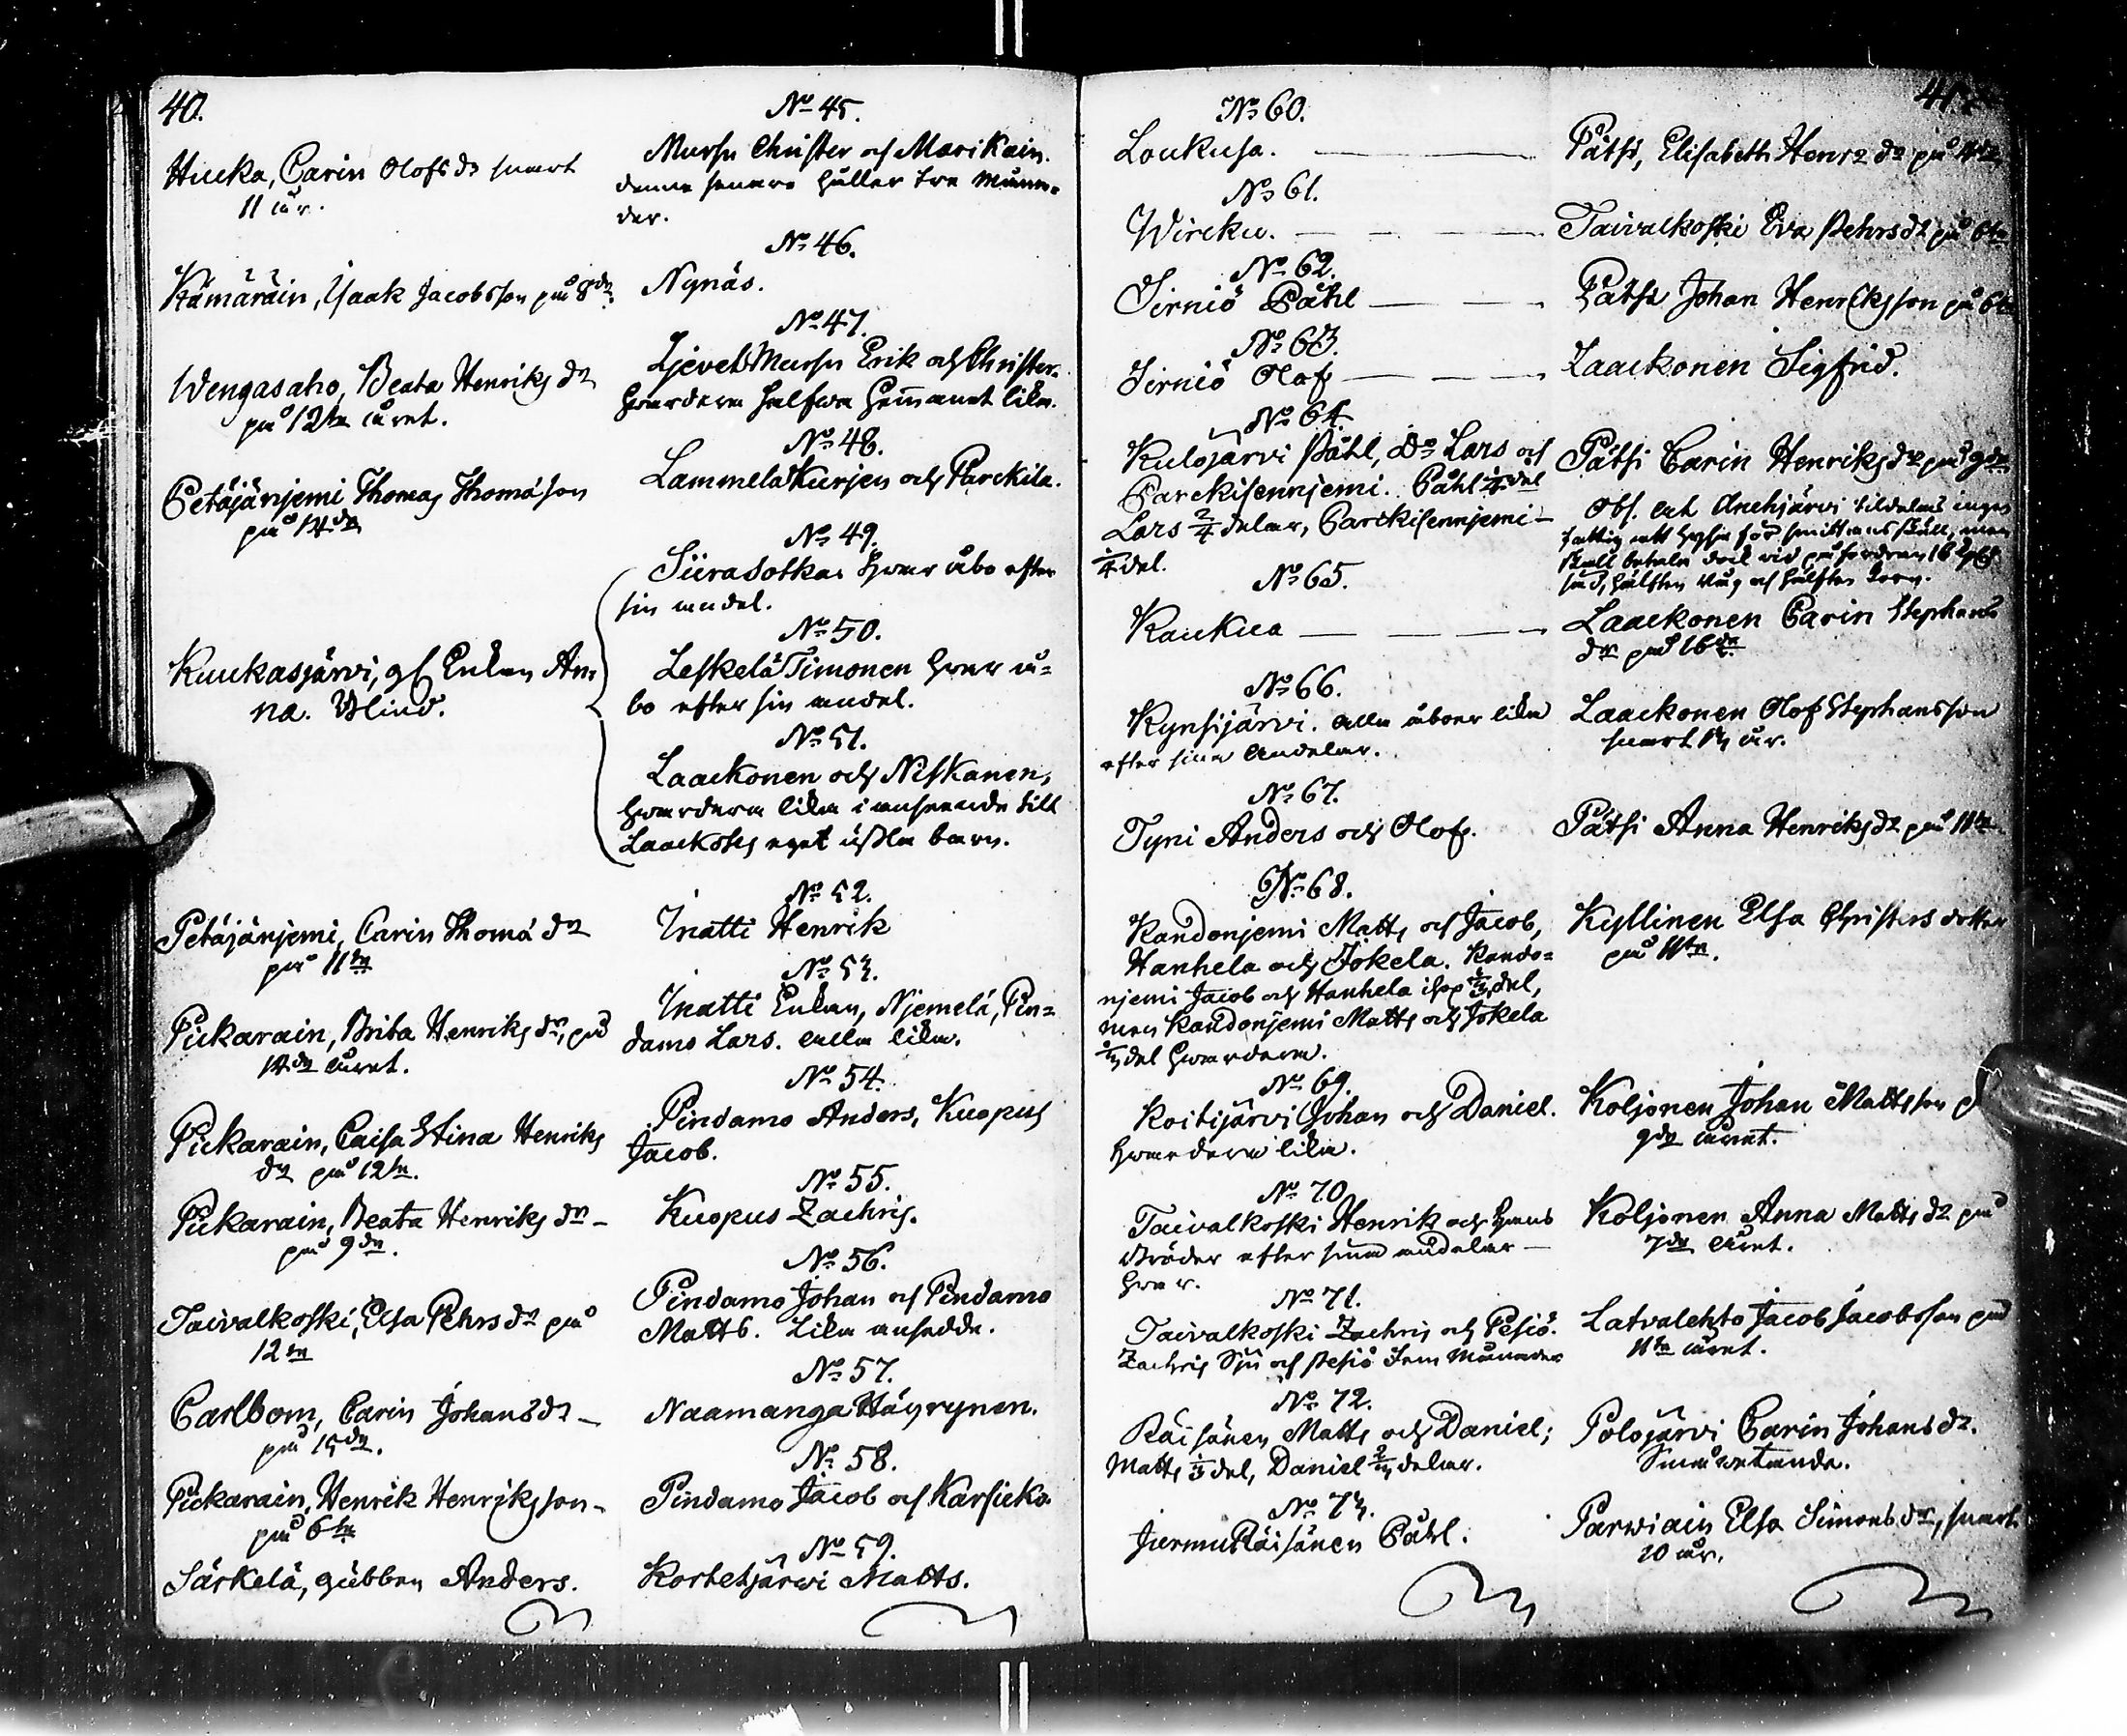 40.
Hucka, Carin Olofs dr snart
11 år.
Kämäräin, Isaak Jacobsson på 8de
Wengasaho, Beata Henriks dr
på 12te året.
Petäjänjemi Thomas Thomæson
på 14de
Kuukasjärvi, gl Enkan An
na. Blind.
Petäjänjemi, Carin Thomæ dr
på 11te
Pickarain, Brita Henriks dr, på
14de året.
Pickarain, Caisa Stina Henriks
dr på 12te.
Pickarain, Beata Henriks dr –
på 9de.
Taivalkoski, Elsa Pehrs dr på
12te
Carlbom, Carin Johans dr –
på 15de.
Pickarain, Henrik Henriksson –
på 6te
Särkelä, gubben Anders.
No 45.
Mursu Christer och Marikain.
denne senare håller tre Måna-
der.
No 46.
Nynäs.
No 47.
Ljevel Mursu Erik och Christer.
hvardera halfwa hemmanet lika.
No 48.
Lammela Kurjen och Parckila.
No 49.
Siira Sotka. hvar åbo efter
sin andel.
No 50.
Leskelä Timonen hvar å-
bo efter sin andel.
No 51.
Laackonen och Niskanen,
hvardera lika i anseende till
Laackos eget usla barn.
No 52.
Inatti Henrik
No 53.
Inatti Enkan, Njemelä, Pin-
damo Lars. alla lika.
No 54.
Pindamo Anders, Kuopus
Jacob.
No 55.
Kuopus Zachris.
No 56.
Pindamo Johan och Pindamo
Matts. Lika ansedde.
No 57.
Naamanga Häyrynen.
No 58.
Pindamo Jacob och Karsicko.
No 59.
Kortetjärwi Matts.
No 60.
Loukusa. –
No 61.
Wircku. – – –
No 62.
Sirniö Påhl – – –
No 63.
Sirniö Olof – – –
No 64.
Kulojärvi Påhl, do Lars och
Parckisennjemi. Påhl 1/4 del
Lars 2/4 delar, Parckisennjemi –
1/4 del.
No 65.
Kaukua – – –
No 66.
Kynsijärvi. alla åboer lika
efter sina andelar.
No 67.
Tyni Anders och Olof.
No 68.
Kandonjemi Matts och Jacob,
Hanhela och Jokela. Kando-
njemi Jacob och Hanhela ihop 1/3 del,
men Kandonjemi Matts och Jokela
1/3 del hvardera.
No 69.
Koitijärvi Johan och Daniel.
hvardera lika.
No 70
Taivalkoski Henrik och hans
Bröder efter sina andelar –
hvar.
No 71.
Taivalkoski Zachris och Pesiö.
Zachris Sju och Pesiö Fem Månader
No 72.
Räisänen Matts och Daniel;
Matts 1/3 del, Daniel 2/3 delar.
No 73.
Jurmu Räisänen Påhl.
Pätsi, Elisabeth Henrs dr på 14de
Taivalkoski Eva Pehrs dr på 6te
Pätsi Johan Henriksson på 6te
Laackonen Sigfrid.
Pätsi Carin Henriks dr på 9de
Obs. att Anehjärvi tildelas ingen
fattig att hysa för smittans skull, men
skall betala dock vid på fordran 16 Lpd
säd, hälften råg och hälften korn.
Laackonen Carin Stephans
dr på 16de.
Laackonen Olof Stephansson
snart 13 år.
Pätsi Anna Henriks dr på 11te
Kyllinen Elsa Christers dotter
på 11te.
Koljonen Johan Mattsson
9de året.
Koljonen Anna Matts dr på
7de året.
Latvalehto Jacob Jacobsson på
11te året.
Polojärvi Carin Johans dr.
Sinnesvetande.
Parwiain Elsa Simons dr, snart
10 år.